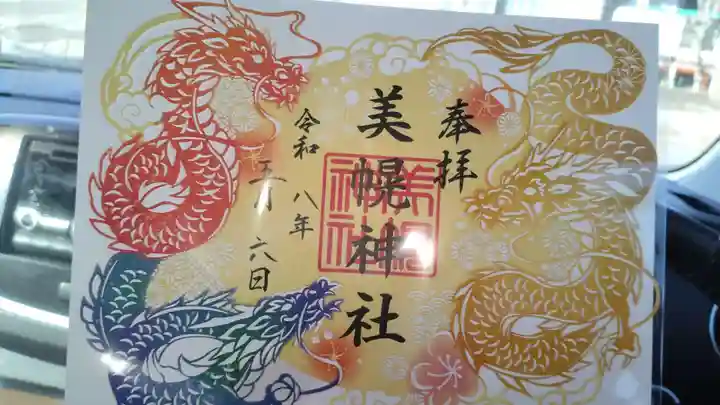 奉拝
美幌神社
美幌神社
令和八年
五月六日